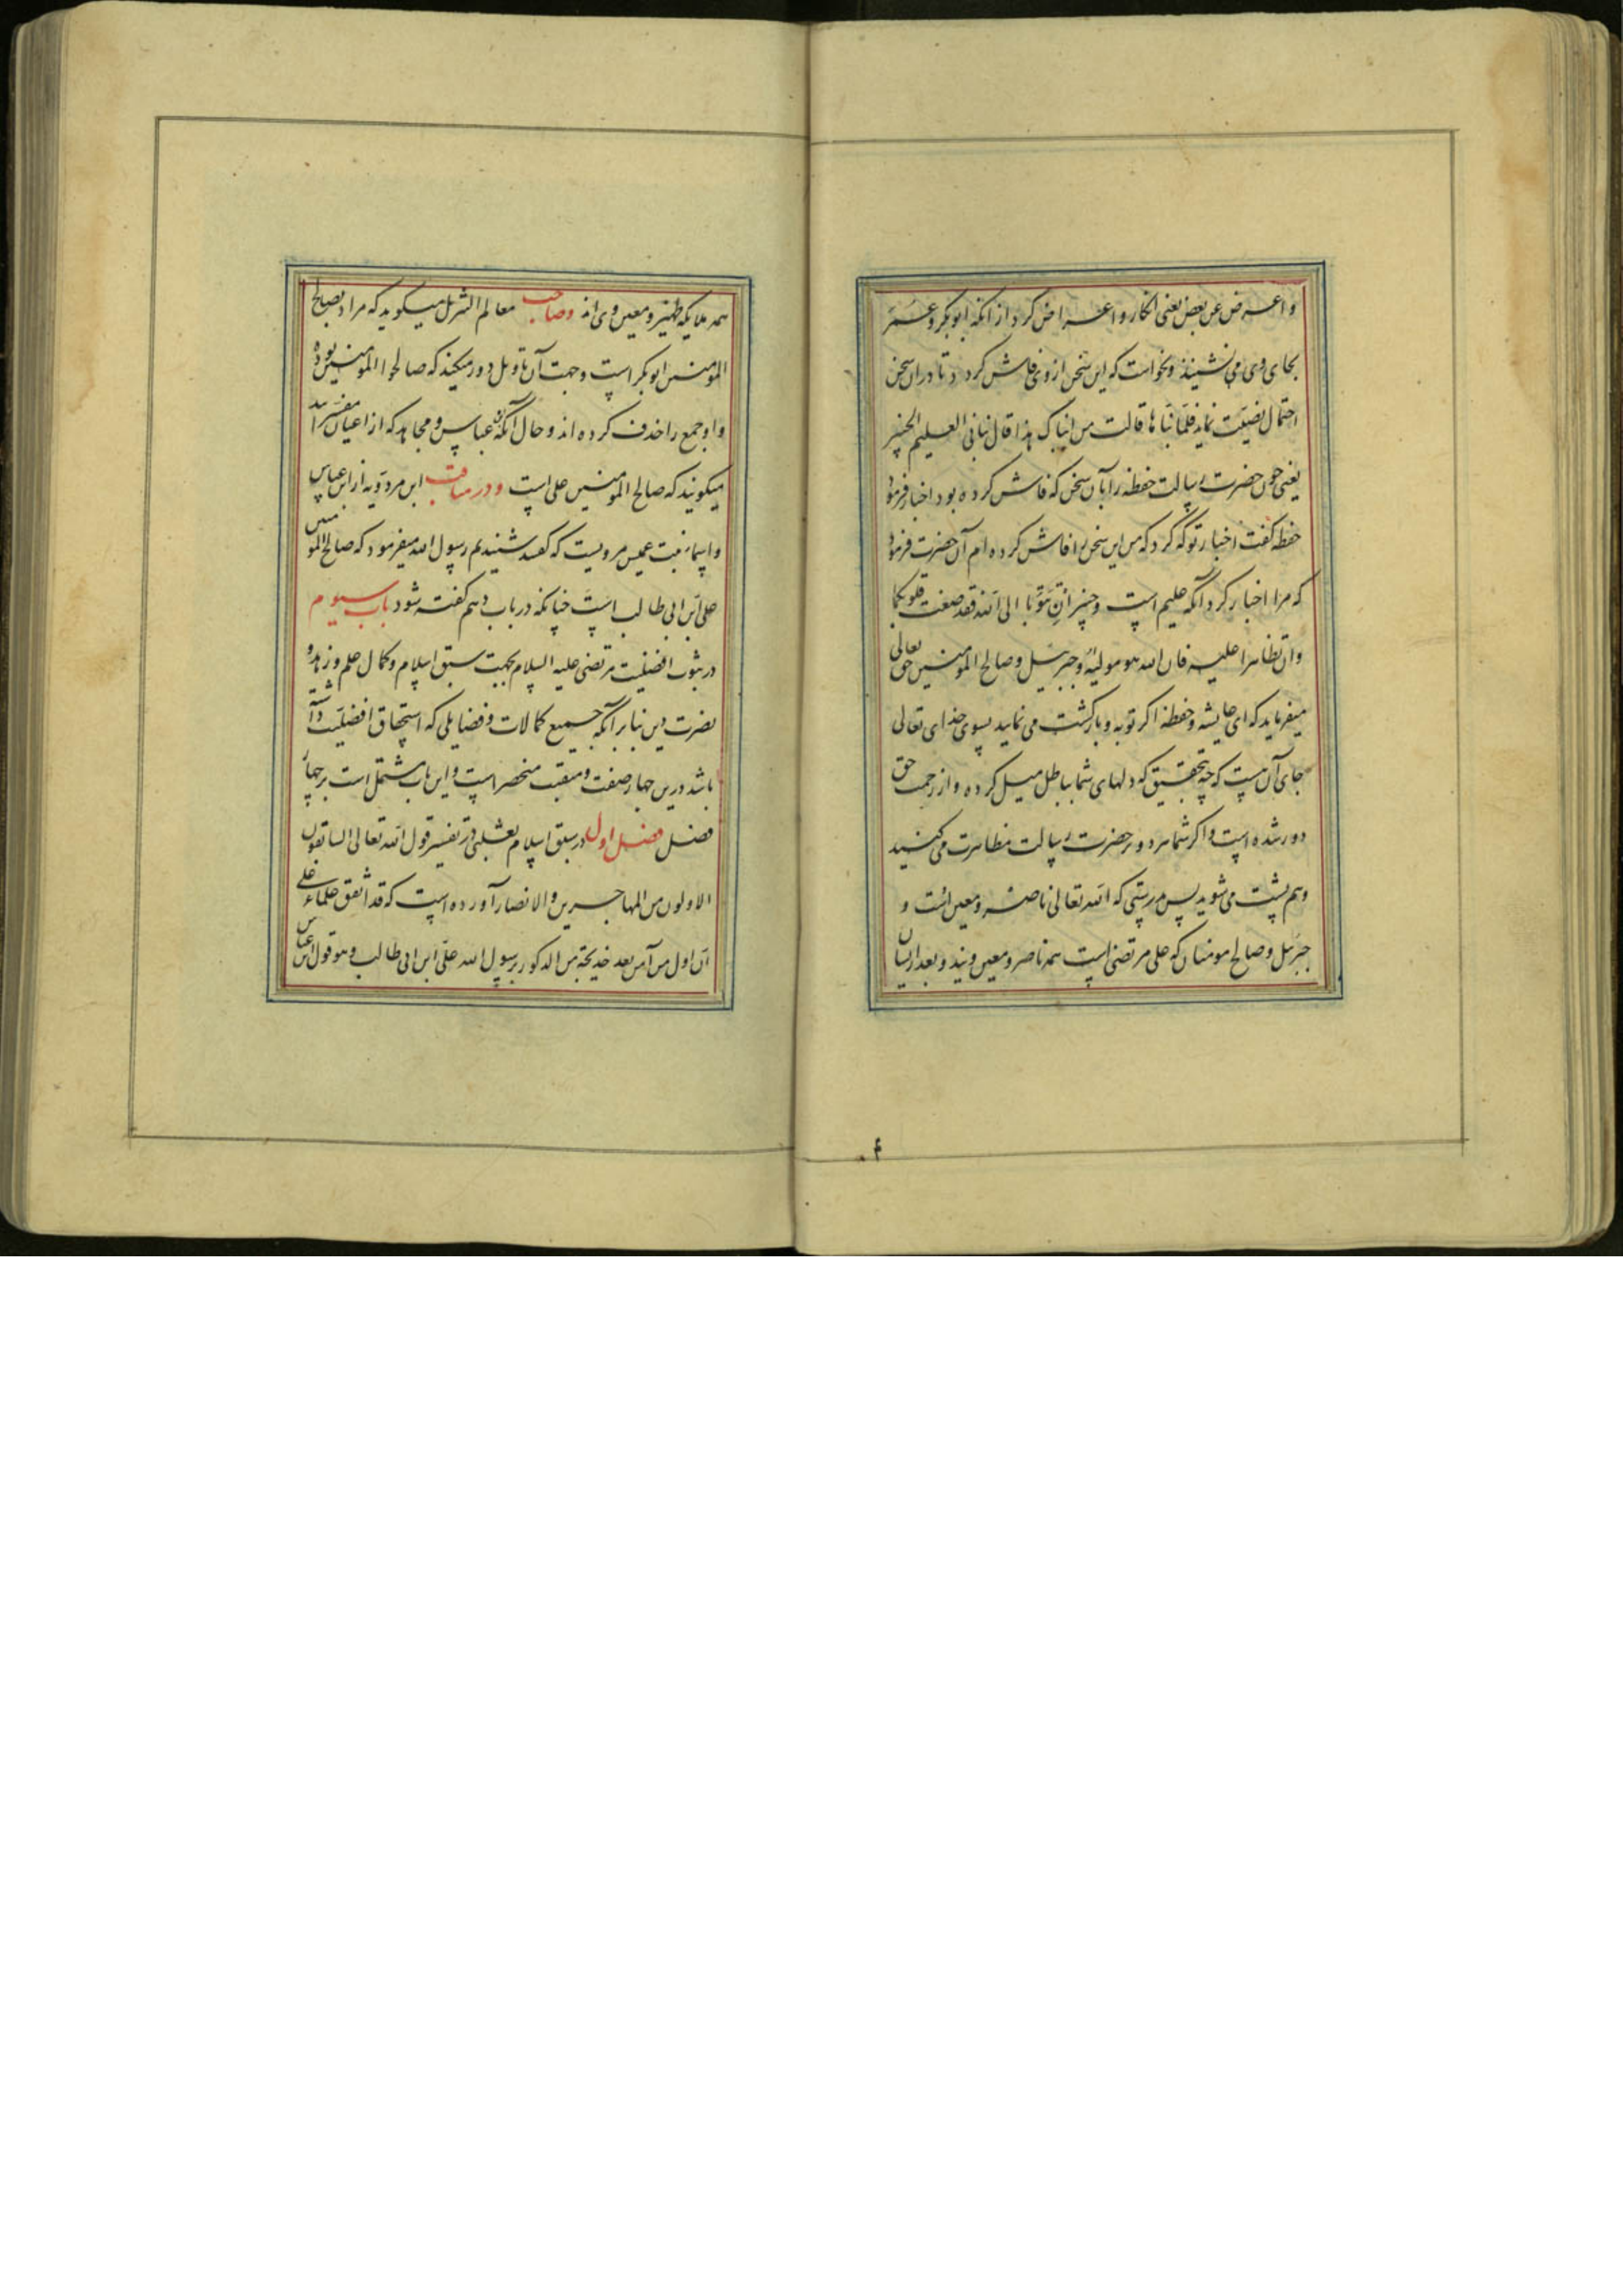 واعرض عن بعض یعنی انکار و اعراض کرد از انکه ابوبکر و عمر
بجای وی می نشینند و نخواست که این سخن از وی فاش کردد تا دران سخن
احتمال نصیت نماید فلما نباها قالت من انباک هذا قال نبانی العلیم الخبیر
یعنی چون حضرت رسالت حفظه را بآن سخن که فاش کرده بود اخبار فرمود
حفظه کفت اخبار تو که کرد که من این سخن را فاش کرده ام آن حضرت فرمود
که مرا اخبار کرد آنکه علیم است و خبیر ان تتوبا الی الله فقد صغت قلوبکما
وان تظاهرا علیه فان الله هو مولیه و جبرئیل و صالح المومنین حق تعالی
میفرماید که ای عایشه و حفظه اکر توبه و بازکشت می نمایید بسوی خدای تعالی
جای آن هست که چه بتحقیق که دلهای شما بباطل میل کرده و از رحمت حق
دور شده است و اکر شما هر دو بر حضرت رسالت مظاهرت می کنید
و هم پشت می شوید پس بدرستی که الله تعالی ناصر و معین اوست و
جبرئیل و صالح مومنان که علی مرتضی است همه ناصر و معین ویند و بعد ازیشان
همه ملایکه ظهیر و معین وی اند وصاحب معالم التنزیل میکوید که مراد بصالح
المومنین ابوبکر است و جهت آن تاویل دور میکند که صالحوا المومنین بوده
و او جمع را حذف کرده اند و حال آنکه ابن عباس و مجاهد که از اعیان مفسرین اند
میکویند که صالح المومنین علی است و در مناقب ابن مردویه از ابن عباس
و اسماء بنت عمیس مرویست که کفتند شنیدیم رسول الله میفرمود که صالح المومنین
علی ابن ابی طالب است چنانکه در باب دهم کفته شود باب سیوم
در ثبوت افضلیت مرتضی علیه السلام بجهت سبق اسلام و کمال علم و زهد و
نصرت دین بنابر آنکه جمیع کمالات و فضایلی که استحقاق افضلیت داشته
باشد درین چهار صفت و منقبت منحصر است و این باب مشتمل است بر چهار
فصل فصل اول در سبق اسلام ثعلبی در تفسیر قول الله تعالی السابقون
الاولون من المهاجرین والانصار آورده است که قد اتفق علماء علی
ان اول من آمن بعد خدیجة من الذکور برسول الله علی ابن ابی طالب و هو قول ابن عباس